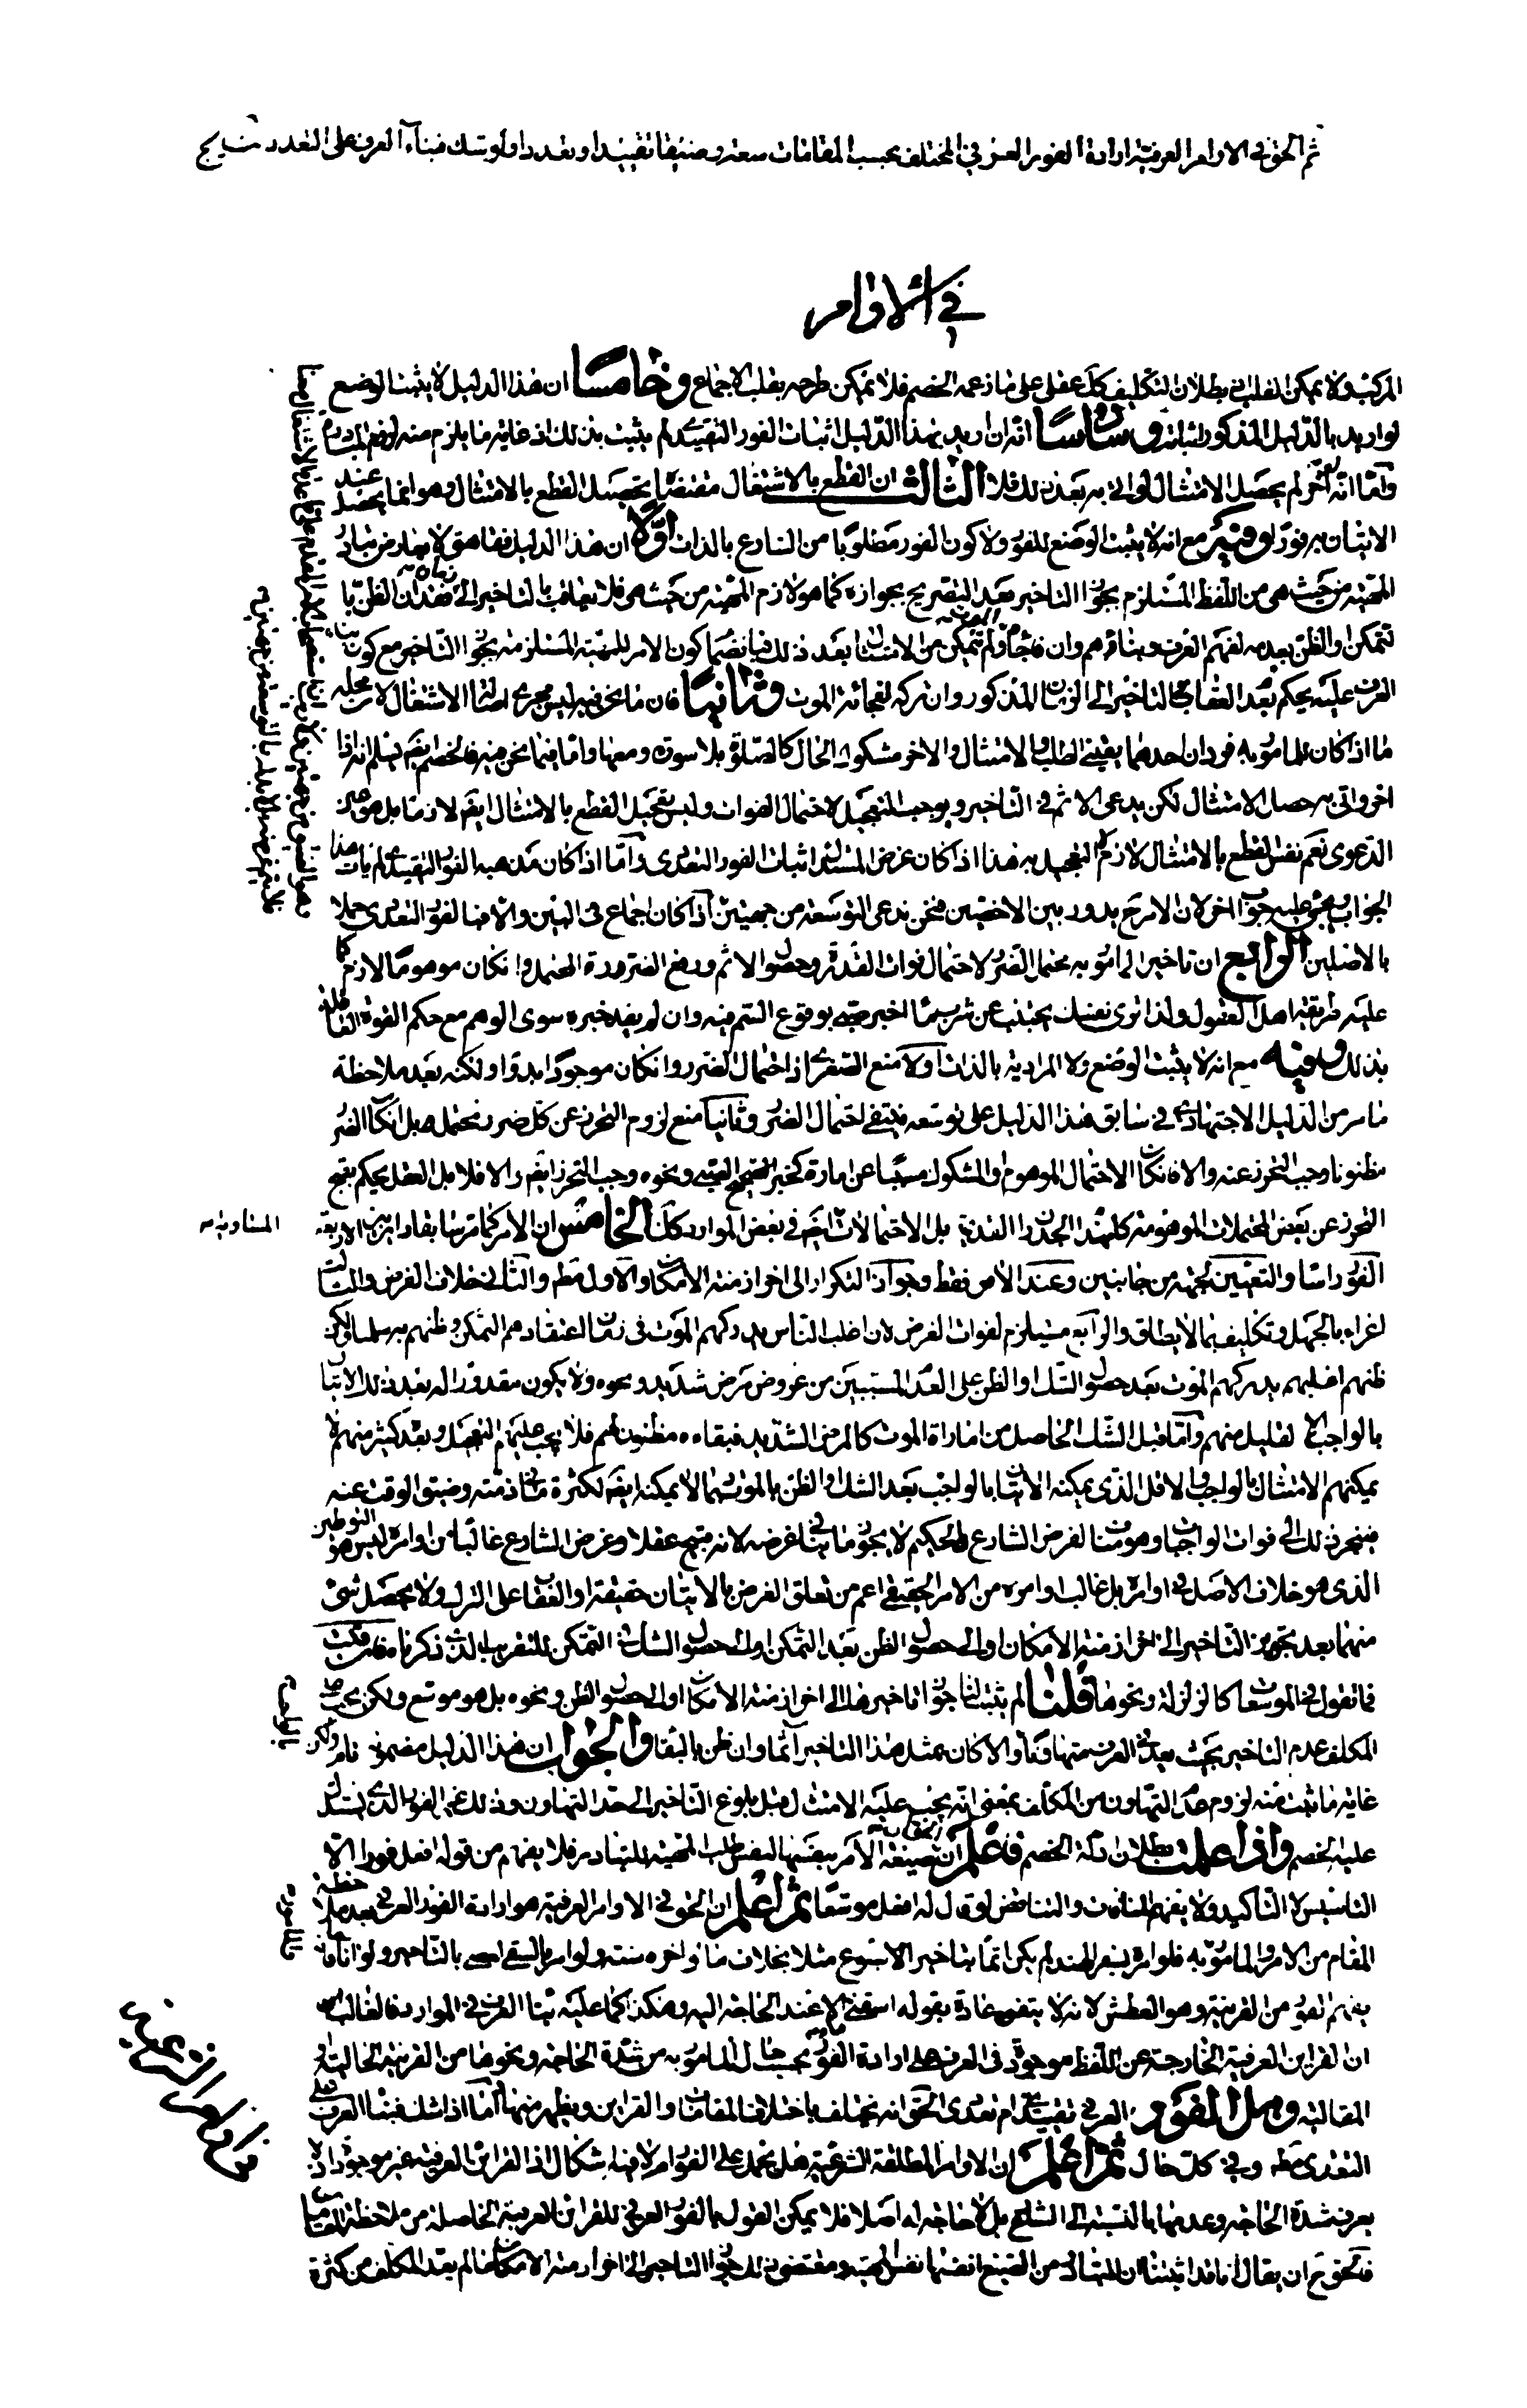 ثم الحق في الاوامر العرفية ارادة الفور العرفي المختلف بحسب المقامات سعة وضيقا تقييدا وتعددا ولو شك فبناء العرف على التعدد
في الاوامر
المركب ولا يمكن القلب في بطلان التكليف كل عقلي على ما زعمه الخصم فلا يمكن طرحه بقلب الاجماع وخامسا ان هذا الدليل لا يثبت الوضع
لو اريد بالدليل المذكور اثباته وسادسا انه ان اريد بهذا الدليل اثبات الفور التقييدي لم يثبت بذلك اذ غاية ما يلزم منه
واما انه لو اخر لم يحصل الامتثال لو اتى به بعد ذلك فلا الثالث ان القطع بالاشتغال مقتض لتحصيل القطع بالامتثال وهو انما يحصل عند
الاتيان به فورا وفيه مع انه لا يثبت الوضع للفور ولا كون الفور مطلوبا من الشارع بالذات اولا ان هذا الدليل فقاهتي لا يعارض تبادر
المهية من حيث هي من اللفظ المستلزم بجواز التاخير بعد التصريح بجوازه كما هو لازم المهية من حيث هي فلا يعاقب بالتاخير الى زمان فقدان الظن با
لتمكن او الظن بعدمه لفهم العرف وبنائهم وان فاجأه الموت ولم يتمكن من الامتثال بعد ذلك فبانضمام كون الامر للمهية المستلزمة بجواز التاخير مع كون بناء
العرف عليه يحكم بعدم العقاب في التاخير الى الزمان المذكور وان تركه لفجائة الموت وثانيا فان ما نحن فيه ليس مجرى اصالة الاشتغال لان محله
ما اذا كان للمامور به فردان احدهما يقيني المطلوبية والامتثال والاخر مشكوك الحال كالصلوة بلا سورة ومعها واما فيما نحن فيه فالخصم ايضا يسلم انه اذا
اخر واتى به حصل الامتثال لكن يدعى الاثم في التاخير ويوجب التعجيل لاحتمال الفوات وليس تعجيل القطع بالامتثال ايضا لازما بل هو عين
الدعوى نعم نفس القطع بالامتثال لازم لا التعجيل به هذا اذا كان غرض المستدل اثبات الفور التعددي واما اذا كان مذهبه الفور التقييدي لم يات هذا
الجواب ويجئ عليه جواب اخر لان الامر ح يدور بين الاخصين فنحن ندعى التوسعة من جهتين اذا كان اجماع في البين والا فالفور التعددي عملا
بالاصلين الرابع ان تاخير المامور به محتمل الضرر لاحتمال فوات القدرة وحصول الاثم ودفع الضرر المحتمل ولو كان موهوما لازم كما
عليه طريقة اهل العقول ولذا ترى نفسك يجتنب عن شرب ما اخبر صبي بوقوع السم فيه وان لم يفد خبره سوى الوهم مع حكم القوة العاقلة
بذلك وفيه مع انه لا يثبت الوضع ولا المرادية بالذات اولا منع الصغرى اذ احتمال الضرر وان كان موجودا بدوا ولكنه بعد ملاحظة
ما مر من الدليل الاجتهادي في سابق هذا الدليل على توسعه ينتفي احتمال الضرر وثانيا منع لزوم التحرز عن كل ضرر محتمل بل ان كان الضرر
مظنونا وجب التحرز عنه والا فان كان الاحتمال الموهوم او المشكوك مسببا عن امارة كخبر الصبي ونحوه وجب التحرز ايضا والا فلا بل العقل يحكم بقبح
التحرز عن بعض المحتملات الموهومة كانهدام الجدار بل الاحتمالات المساوية ايضا في بعض الموارد كك الخامس ان الامر كما مر سابقا دائر بين الاربعة
الفور راسا والتعيين لجهة من جانبين وعند الامر فقط وجواز التكرار الى اخر ازمنة الامكان والاول مطلوب والثاني خلاف الفرض والثالث
اغراء بالجهل وتكليف بما لا يطاق والرابع مستلزم لفوات الغرض لان اغلب الناس يدركهم الموت في زمان اعتقادهم التمكن وظنهم به سلمنا ولكن
ظنهم اغلبهم يدركهم الموت بعد حصول الشك او الظن على العدم المسببين من عروض مرض شديد ونحوه ولا يكون مقدورا له بعد ذلك الاتيان
بالواجب الا لقليل منهم واما قبل الشك الحاصل من امارة الموت كالمرض الشديد فبقاءه مظنون لهم فلا يجب عليهم التعجيل وبعد كثير منهم لا
يمكنهم الامتثال بالواجب والاقل الذي يمكنه الاتيان بالواجب بعد الشك او الظن بالموت ربما لا يمكنه ايضا لكثرة ما في ذمته وضيق الوقت عنه
فينجر ذلك الى فوات الواجبات وهو مناف لغرض الشارع والحكيم لا يجوز ما ينافي غرضه لانه قبيح عقلا وغرض الشارع غالبا من اوامره ليس هو التوطين
الذي هو خلاف الاصل في اوامره بل غالب اوامره من الامر الحقيقي اعم من تعلق الغرض بالاتيان حقيقة او العقاب على الترك ولا يحصل شئ
منهما بعد تجويز التاخير الى اخر ازمنة الامكان او الى حصول الظن بعدم التمكن او الى حصول الشك في التمكن للتقريب الذي ذكرناه فان قلت
فما تقول في الموسعات كالزلزلة ونحوها قلنا لم يثبت لنا جواز تاخيرها الى اخر ازمنة الامكان او الى حصول الظن ونحوه بل هو موسع ولكن يجب على
المكلف عدم التاخير بحيث يعد في العرف متهاونا والا كان بمثل هذا التاخير آثما وان ظن بالبقاء والجواب ان هذا الدليل مضمونه تام ولكن
غاية ما ثبت منه لزوم عدم التهاون من المكلف بمعنى انه يجب عليه الامتثال قبل بلوغ التاخير الى حد التهاون وذلك غير الفور الذي يستدل
عليه الخصم واذا علمت بطلان ادلة الخصم فاعلم ان الحق ان صيغة الامر بنفسها لنفس طلب المهية للتبادر فلا يفهم من قوله افعل فورا الا
التاسيس لا التاكيد ولا يفهم المنافات والتناقض لو قال له افعل موسعا ثم اعلم ان الحق في الاوامر العرفية هو ارادة الفور العرفي بعد ملاحظة
المقام من الامر والمامور به فلو امر بسفر الهند لم يكن آثما بتاخير الاسبوع مثلا بخلاف ما لو اخره سنة ولو امر بالسقي بالتاخير ولو آنا فانه
يفهم الفور من القرينة وهو العطش لانه لا يتفوه عادة بقوله اسقني الا عند الحاجة اليه وهكذا كما عليه بناء العرف في الموارد فالغالب
ان القراين العرفية الخارجة عن اللفظ موجودة في العرف على ارادة الفور بحسب حال المامور به من شدة الحاجة ونحوها من القرينة الحالية
المقالية وهل الفور العرفي تقييدي ام تعددي الحق انه يختلف باختلاف المقامات والقراين ويظهر منهما اما اذا شك فبناء العرف على
التعددي مطلقا وفي كل حال ثم اعلم ان الاوامر المطلقة الشرعية هل يحمل على الفور ام لا فيها اشكال اذ القراين العرفية غير موجودة اذ لا
يعرف شدة الحاجة وعدمها بالنسبة الى الشارع بل لا حاجة له اصلا فلا يمكن القول بالفور العرفي للقراين العرفية الحاصلة من ملاحظة المقامات
فالحق ح ان يقال انا قد اثبتنا ان المتبادر من الصيغ انفسها نفس المهية ومقتضى ذلك جواز التاخير الى اخر ازمنة الامكان ما لم يعد المكلف من كثرة